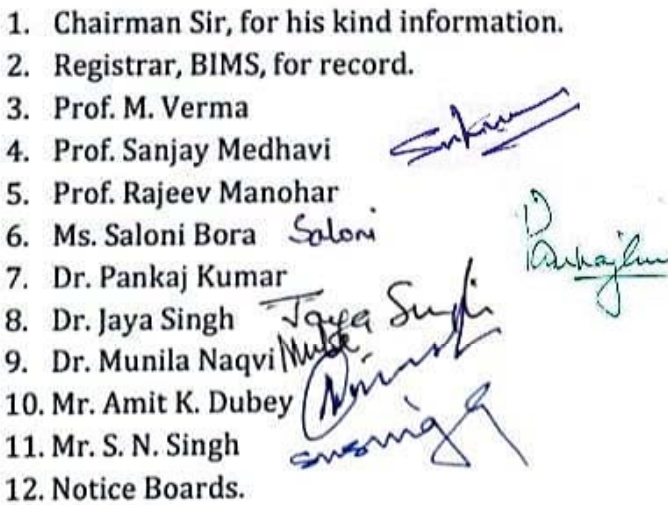 1. Chairman Sir, for his kind information.
2. Registrar, BIMS, for record.
3. Prof. M. Verma
4. Prof. Sanjay Medhavi
5. Prof. Rajeev Manohar
6. Ms. Saloni Bora Saloni
7. Dr. Pankaj Kumar
8. Dr. Jaya Singh Jaya Singh
9. Dr. Munila Naqvi
10. Mr. Amit K. Dubey
11. Mr. S. N. Singh
12. Notice Boards.